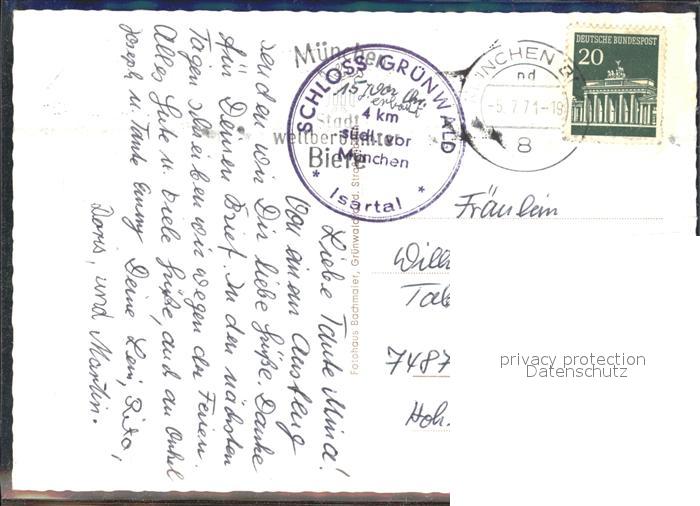 Liebe Tante Mina!
Von einem Ausflug
senden wir Dir liebe Grüße. Danke
für Deinen Brief. In den nächsten
Tagen schreiben wir wegen der Ferien.
Alles Gute u. viele Grüße, auch an Onkel
Joseph u. Tante Emmy Deine Leni, Rita,
Doris, und Martin.
Fotohaus Bachmaier, Grünwald
München
Stadt
weltberühmter
Biere
SCHLOSS GRÜNWALD
15
erbaut
4 km
südl. vor
München
* Isartal *
MÜNCHEN
nd
-5.7.71-19
8
DEUTSCHE BUNDESPOST
20
Fräulein
7487
Hoh.
privacy protection
Datenschutz